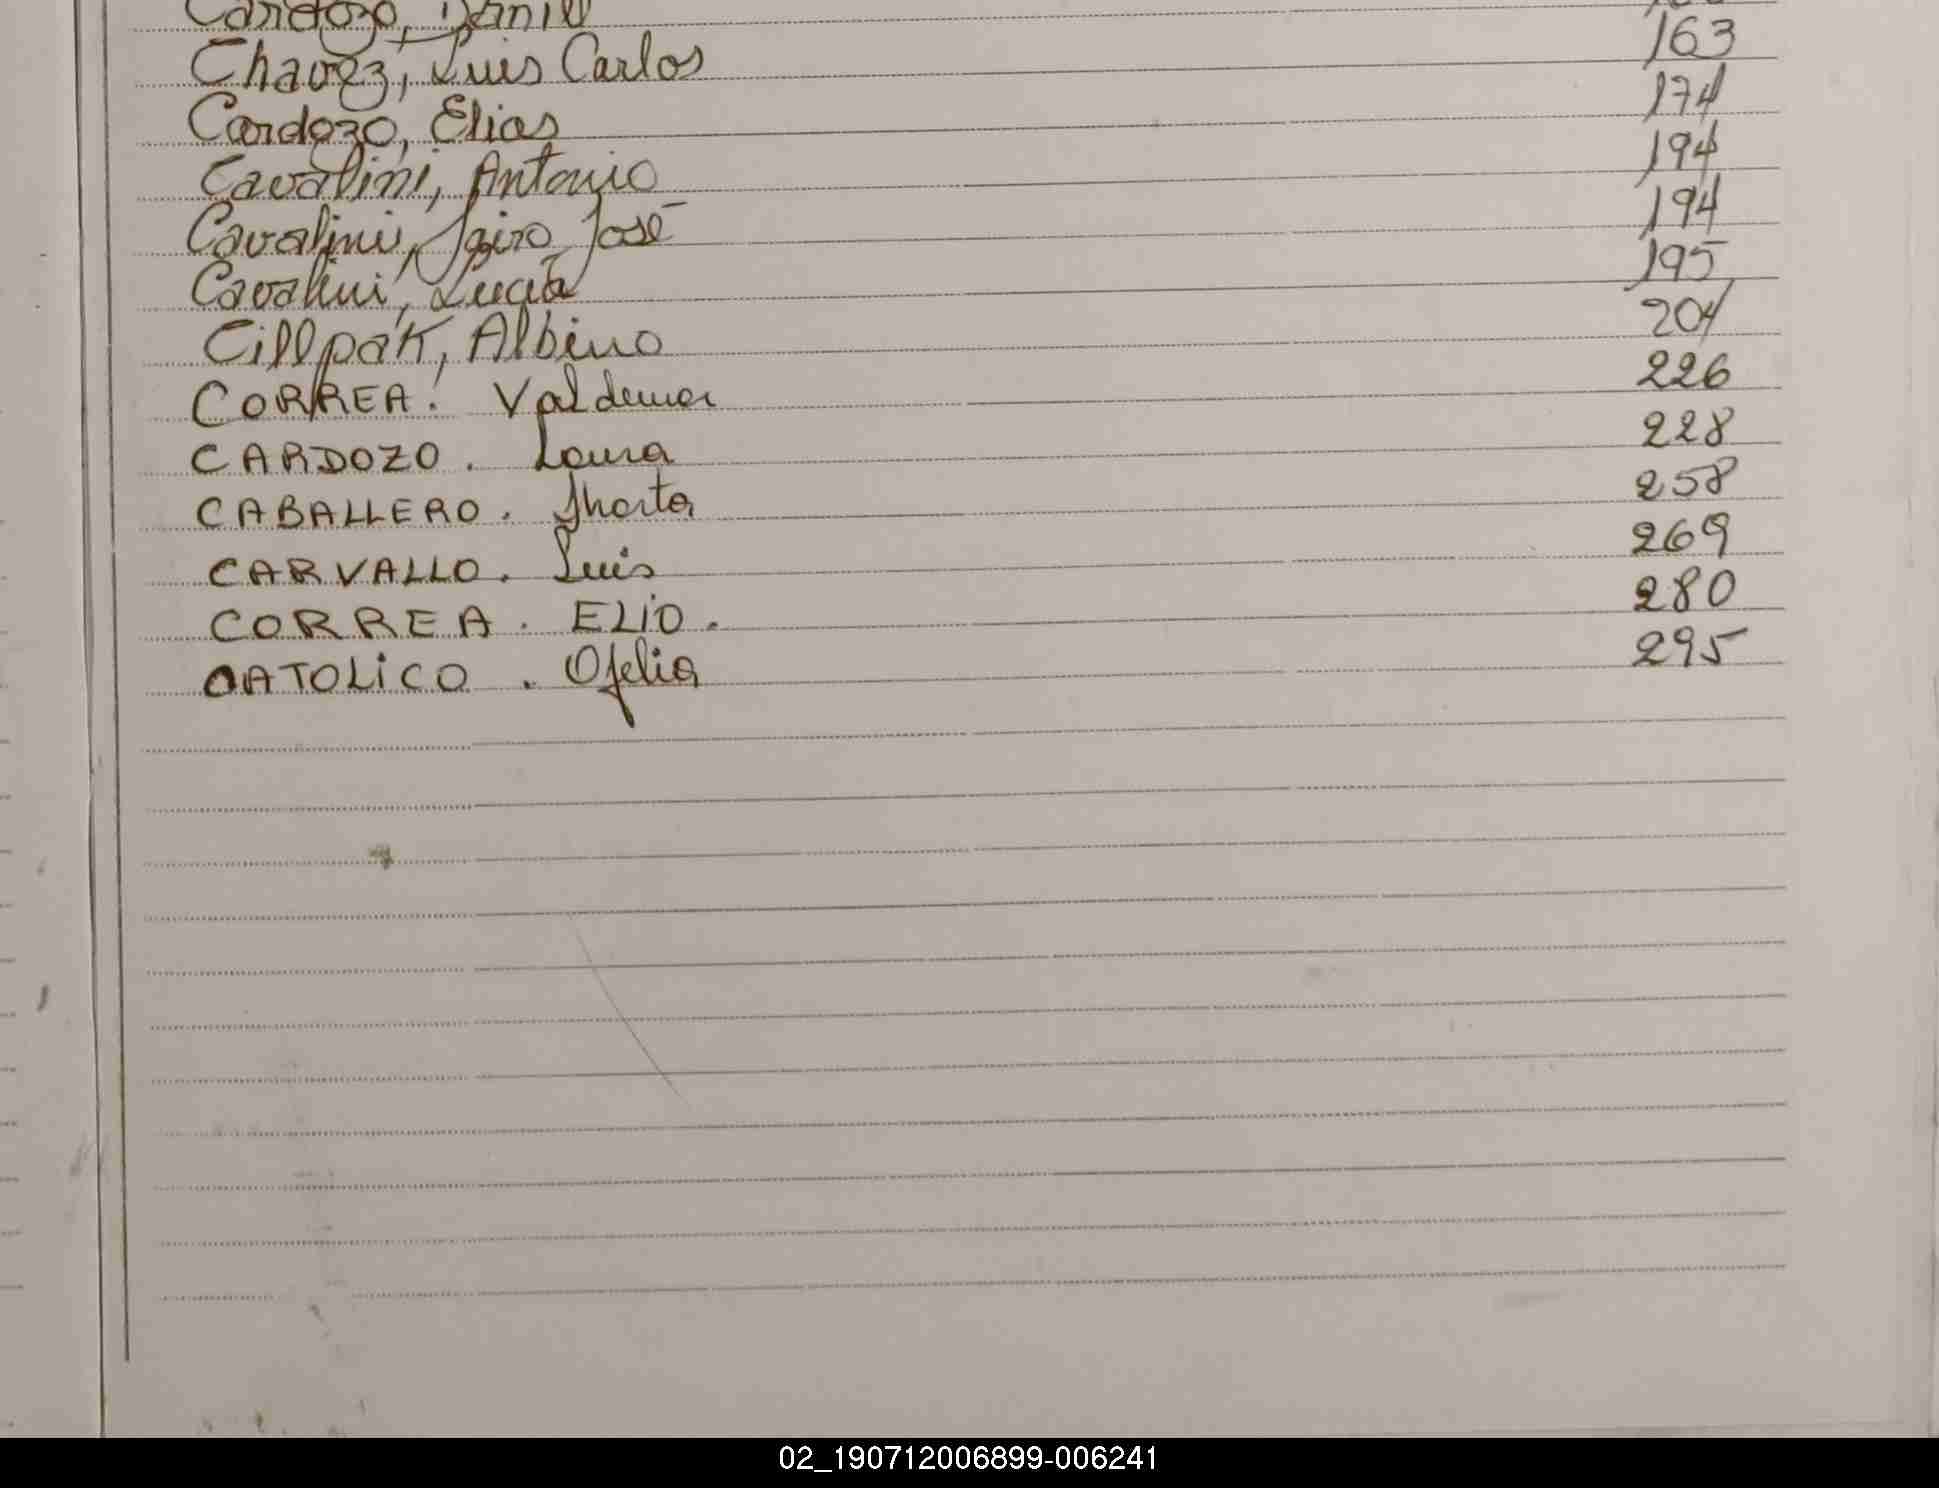 Cardozo, Daniel
Chavez, Luis Carlos 163
Cardozo, Elias 174
Cavalini, Antonio 194
Cavalini, Jairo José 194
Cavalini, Lucia 195
Cillpak, Albino 204
CORREA. Valdemar 226
CARDOZO. Laura 228
CABALLERO. 258
CARVALLO. Luis 269
CORREA. ELiO. 280
CATOLiCO. Ofelia 295
02_190712006899-006241